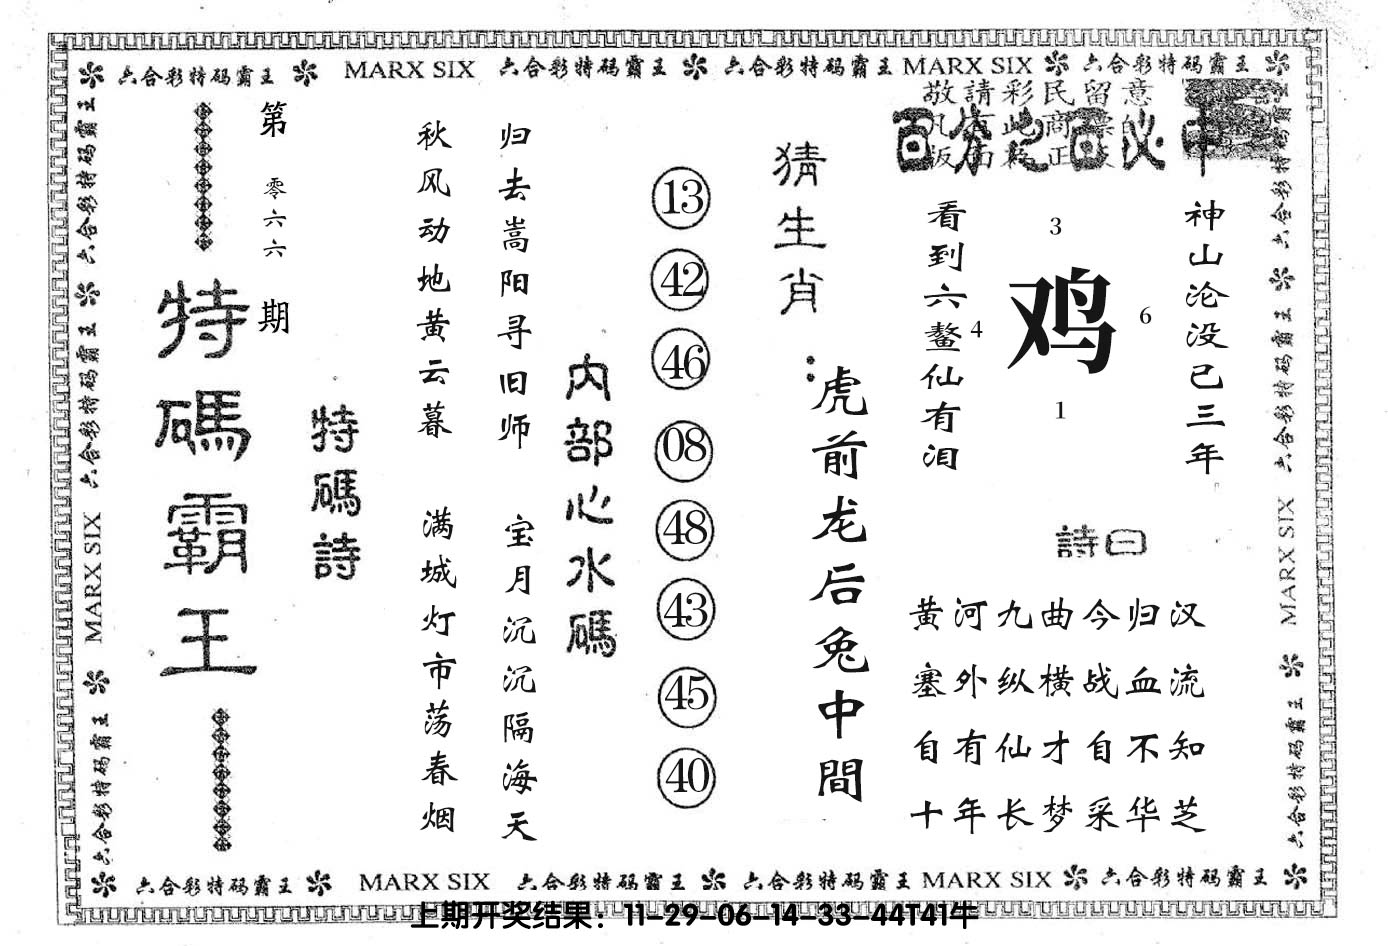 六合彩特码霸王 MARX SIX 六合彩特码霸王 六合彩特码霸王 MARX SIX 六合彩特码霸王
敬請彩民留意
神山沦没已三年
看到六鳌仙有泪
3
鸡
4
6
1
詩曰
黄河九曲今归汉
塞外纵横战血流
自有仙才自不知
十年长梦采华芝
猜生肖:
虎前龙后兔中間
13
42
46
08
48
43
45
40
内部心水碼
归去嵩阳寻旧师
宝月沉沉隔海天
秋风动地黄云暮
满城灯市荡春烟
特碼詩
第零六六期
特碼霸王
六合彩特码霸王 MARX SIX 六合彩特码霸王 六合彩特码霸王
六合彩特码霸王 六合彩特码霸王 MARX SIX 六合彩特码霸王
六合彩特码霸王 MARX SIX 六合彩特码霸王 六合彩特码霸王 MARX SIX 六合彩特码霸王
上期开奖结果：11-29-06-14-33-44T41牛